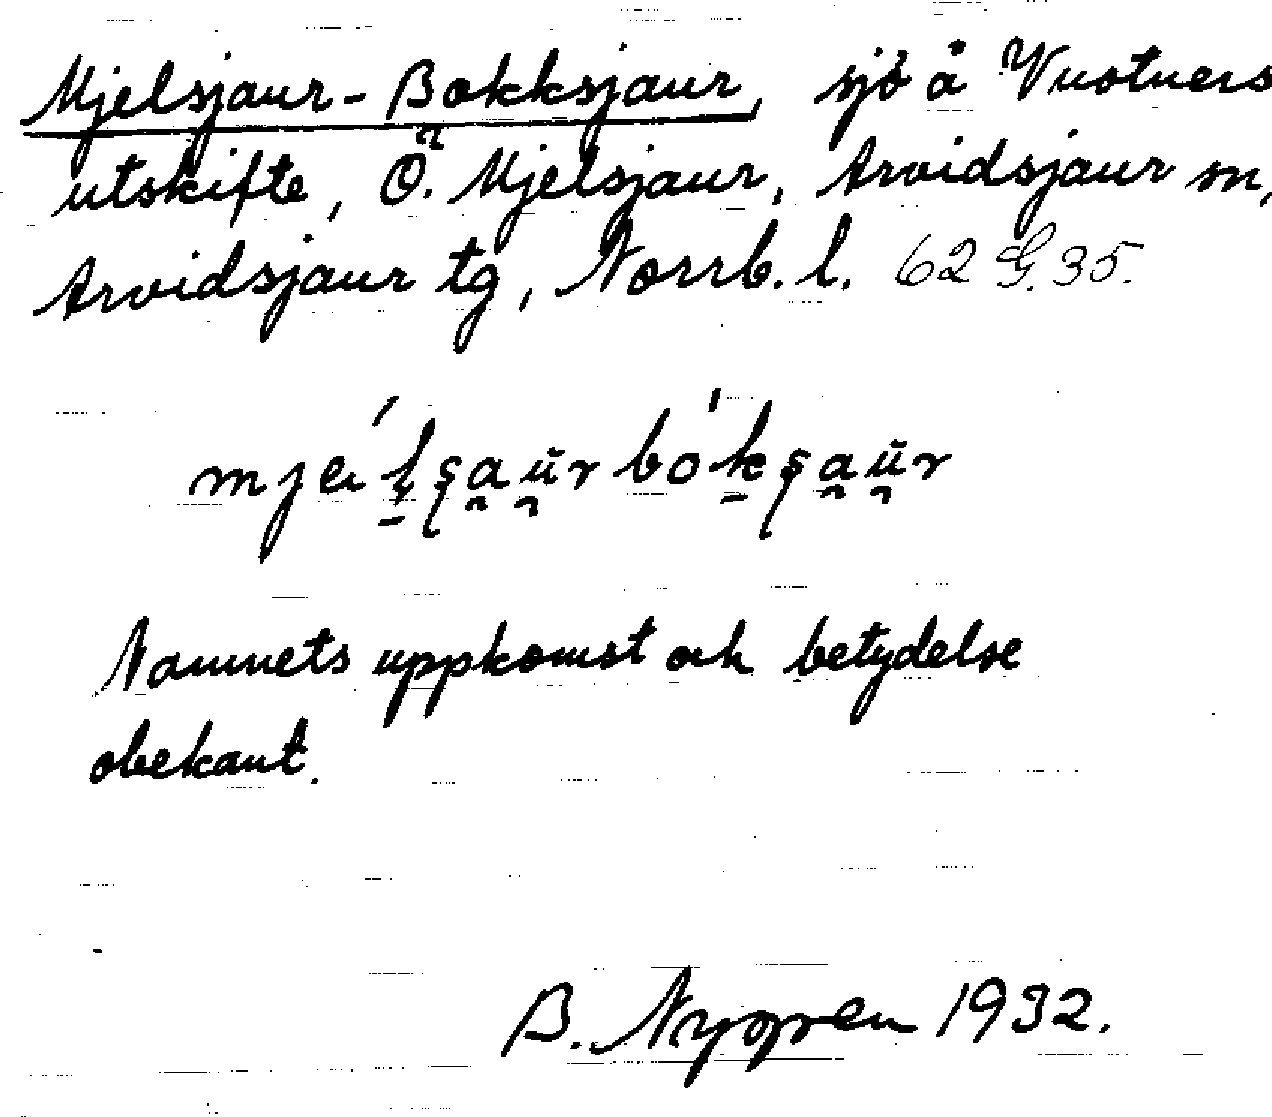 Mjelsjaur-Bokksjaur, sjö å Vuotners
utskifte, Ö. Mjelsjaur, Arvidsjaur sn,
Arvidsjaur tg, Norrb. l. 62 G. 35.
Namnets uppkomst och betydelse
obekant.
B. Nygren 1932.